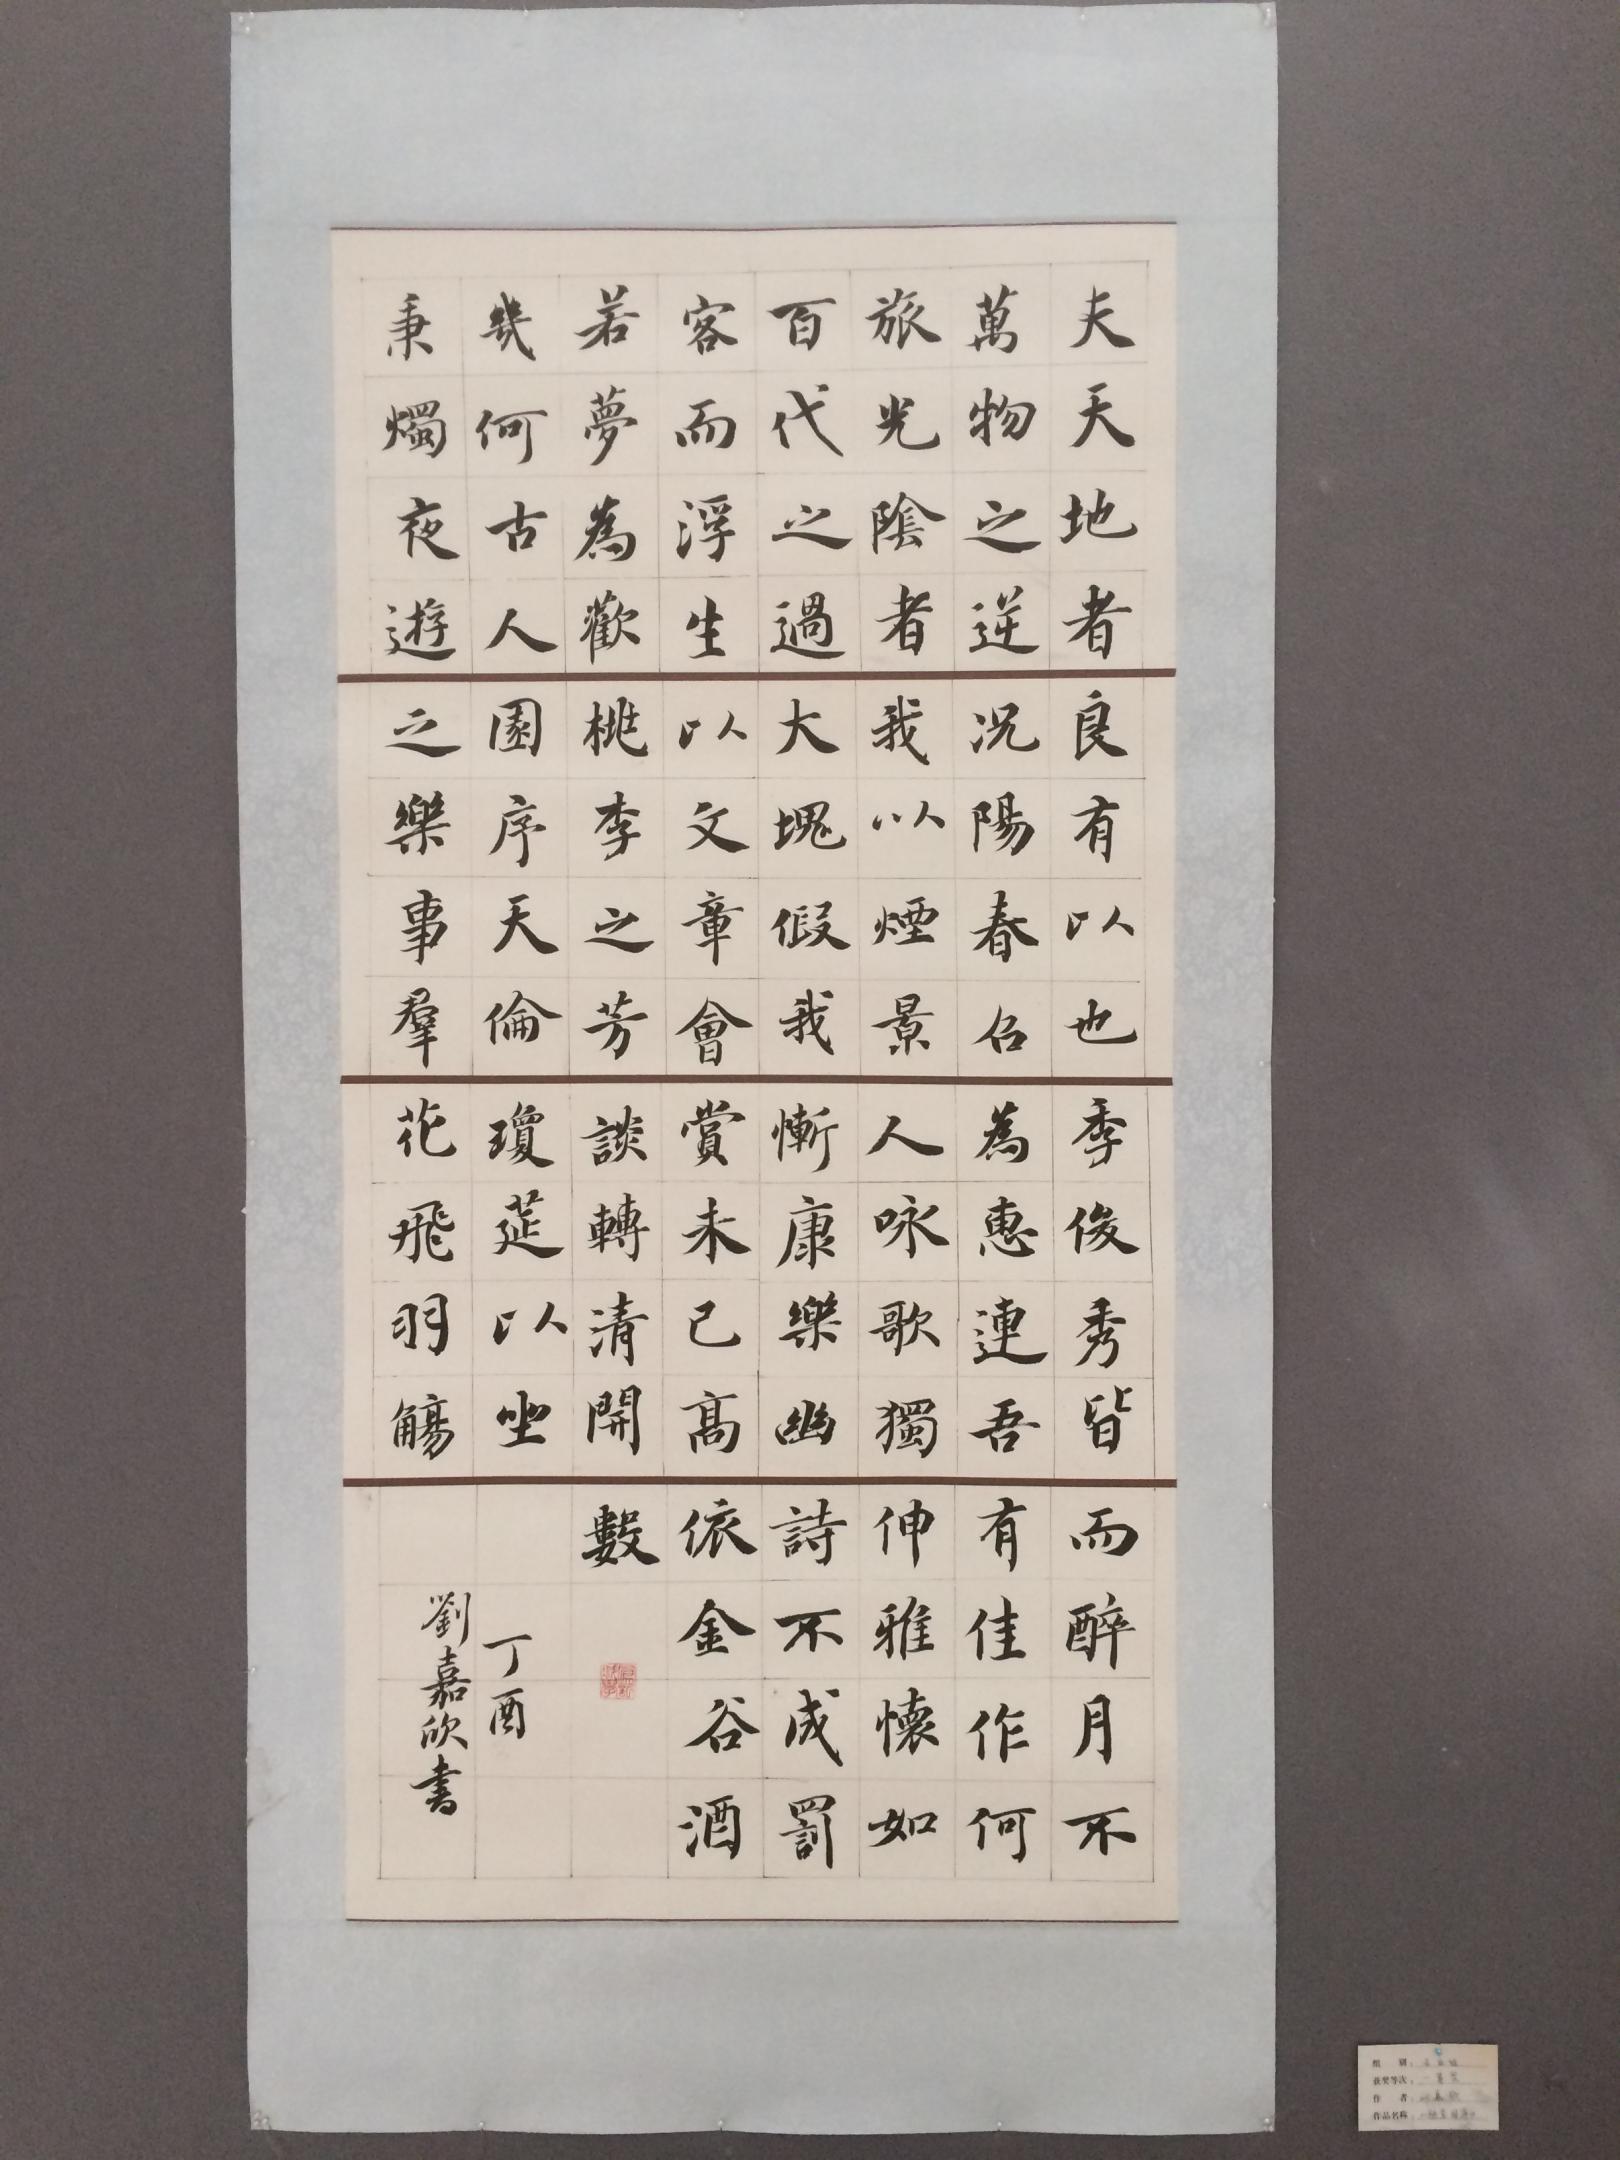 夫天地者
萬物之逆
旅光陰者
百代之過
客而浮生
若夢為歡
幾何古人
秉燭夜遊
良有以也
況陽春召
我以煙景
大塊假我
以文章會
桃李之芳
園序天倫
之樂事羣
季俊秀皆
為惠連吾
人咏歌獨
慚康樂幽
賞未已高
談轉清開
瓊莚以坐
花飛羽觴
而醉月不
有佳作何
伸雅懷如
詩不成罰
依金谷酒
數
丁酉
劉嘉欣書
组 别：
获奖等次：一等奖
作 者：
作品名称：